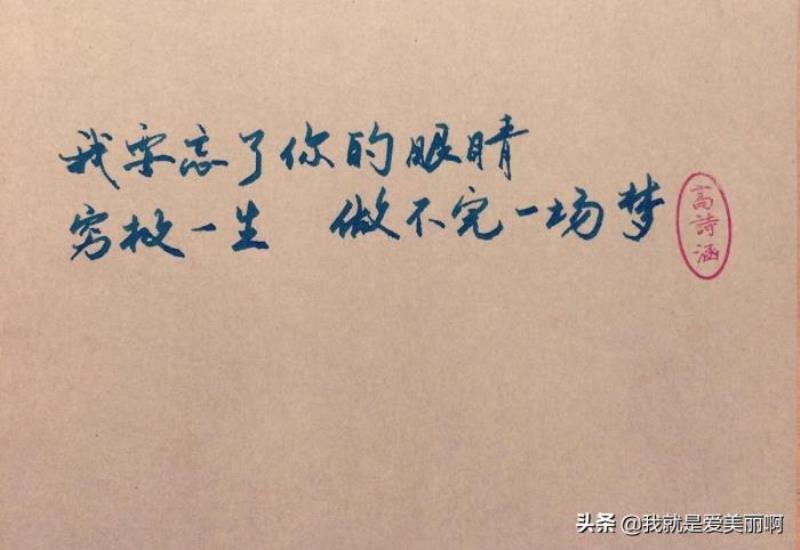 我要忘了你的眼睛
穷极一生 做不完一场梦
高詩涵
头条 @我就是爱美丽啊